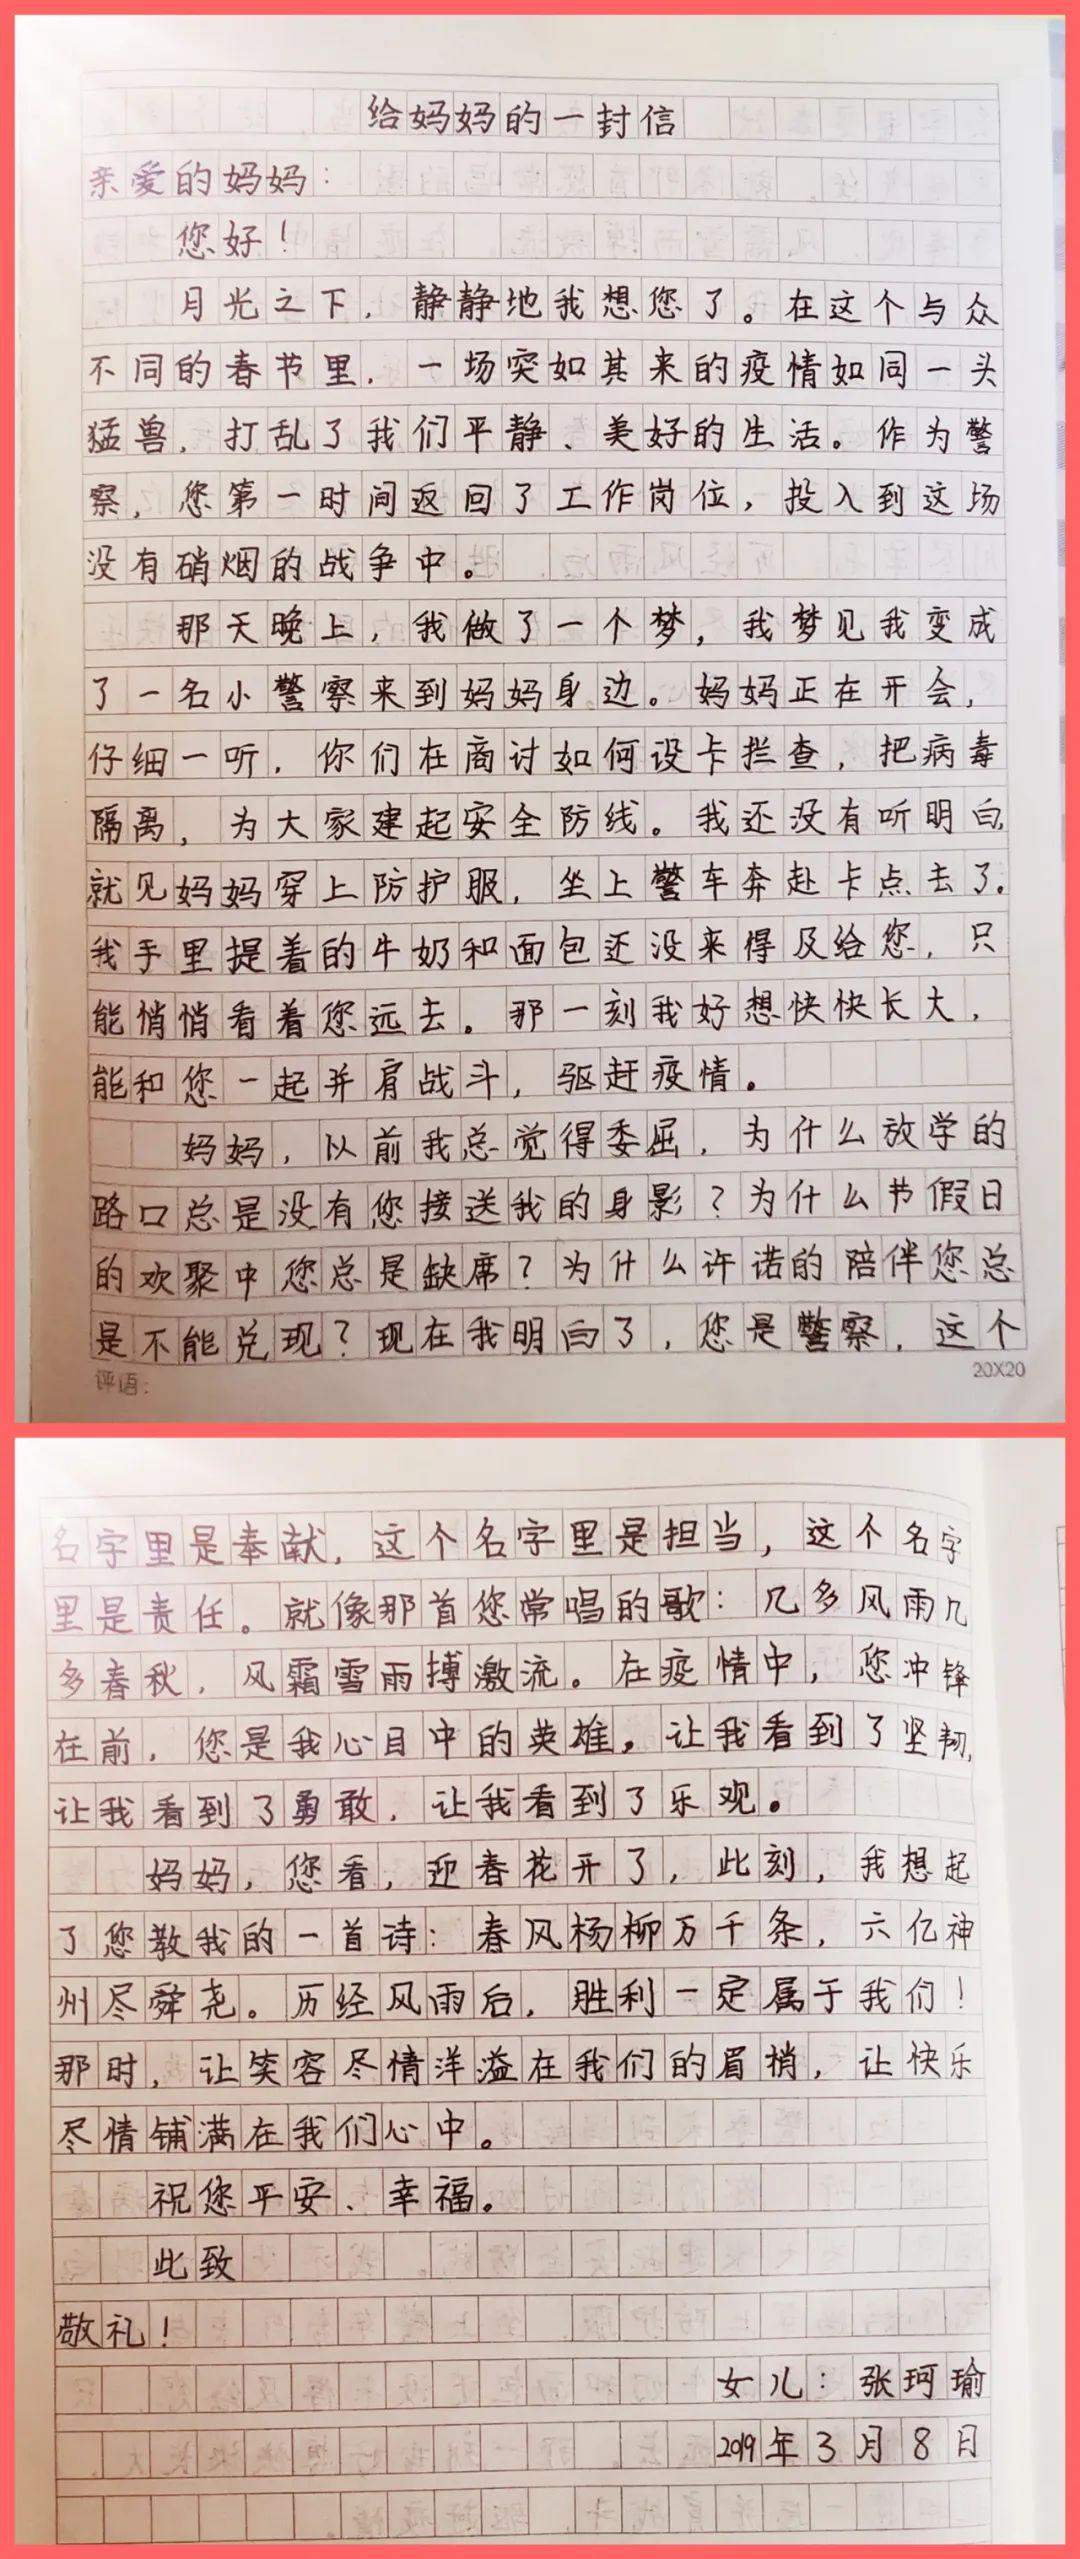 给妈妈的一封信
亲爱的妈妈：
您好！
月光之下，静静地我想您了。在这个与众
不同的春节里，一场突如其来的疫情如同一头
猛兽，打乱了我们平静、美好的生活。作为警
察，您第一时间返回了工作岗位，投入到这场
没有硝烟的战争中。
那天晚上，我做了一个梦，我梦见我变成
了一名小警察来到妈妈身边。妈妈正在开会，
仔细一听，你们在商讨如何设卡拦查，把病毒
隔离，为大家建起安全防线。我还没有听明白，
就见妈妈穿上防护服，坐上警车奔赴卡点去了。
我手里提着的牛奶和面包还没来得及给您，只
能悄悄看着您远去。那一刻我好想快快长大，
能和您一起并肩战斗，驱赶疫情。
妈妈，以前我总觉得委屈，为什么放学的
路口总是没有您接送我的身影？为什么节假日
的欢聚中您总是缺席？为什么许诺的陪伴您总
是不能兑现？现在我明白了，您是警察，这个
评语：
20X20
名字里是奉献，这个名字里是担当，这个名字
里是责任。就像那首您常唱的歌：几多风雨几
多春秋，风霜雪雨搏激流。在疫情中，您冲锋
在前，您是我心目中的英雄，让我看到了坚韧，
让我看到了勇敢，让我看到了乐观。
妈妈，您看，迎春花开了，此刻，我想起
了您教我的一首诗：春风杨柳万千条，六亿神
州尽舜尧。历经风雨后，胜利一定属于我们！
那时，让笑容尽情洋溢在我们的眉梢，让快乐
尽情铺满在我们心中。
祝您平安、幸福。
此致
敬礼！
女儿：张珂瑜
2019年3月8日